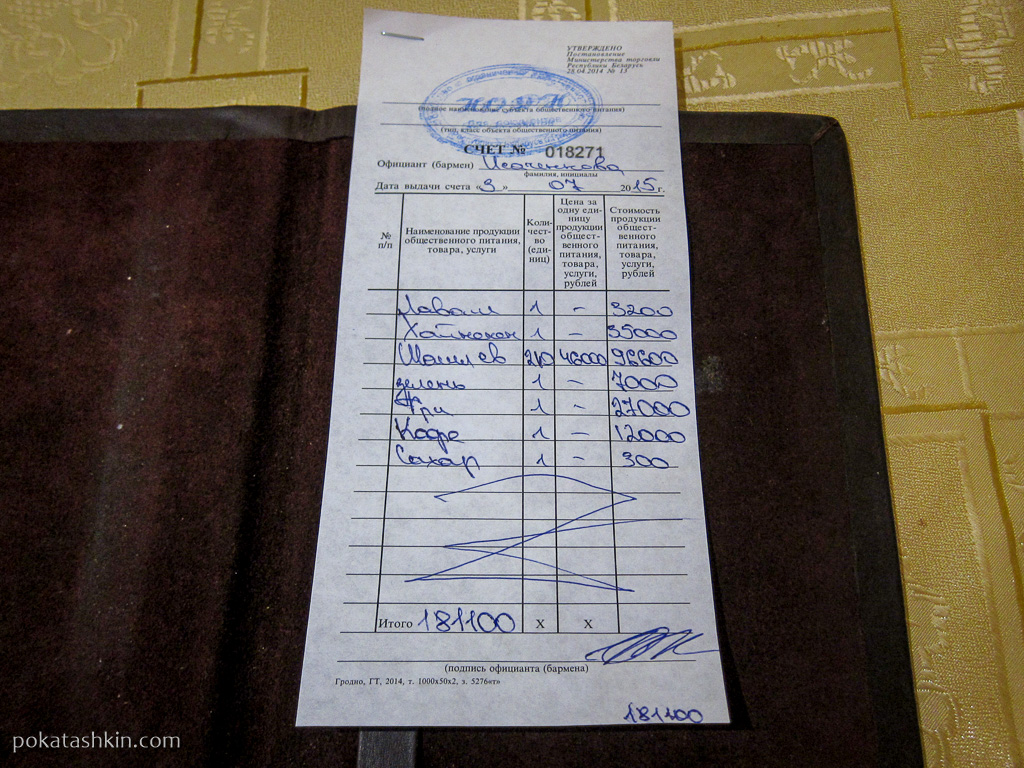 УТВЕРЖДЕНО
Постановление
Министерства торговли
Республики Беларусь
28.04.2014 № 13
(полное наименование субъекта общественного питания)
(тип, класс объекта общественного питания)
СЧЕТ № 018271
Официант (бармен) Исаченкова
фамилия, инициалы
Дата выдачи счета «3» 07 2015 г.
№ п/п Наименование продукции общественного питания, товара, услуги Коли-чест-во (еди-ниц) Цена за одну еди-ницу продукции общест-венного питания, товара, услуги, рублей Стоимость продукции общест-венного питания, товара, услуги, рублей
Лаваш 1 - 3200
1 - 35000
Шашл св 210 46000 96600
зелень 1 - 7000
Фри 1 - 27000
Кофе 1 - 12000
Сахар 1 - 300
Итого 181100 X X
(подпись официанта (бармена)
Гродно, ГТ, 2014, т. 1000х50х2, з. 5276«т»
181100
pokatashkin.com